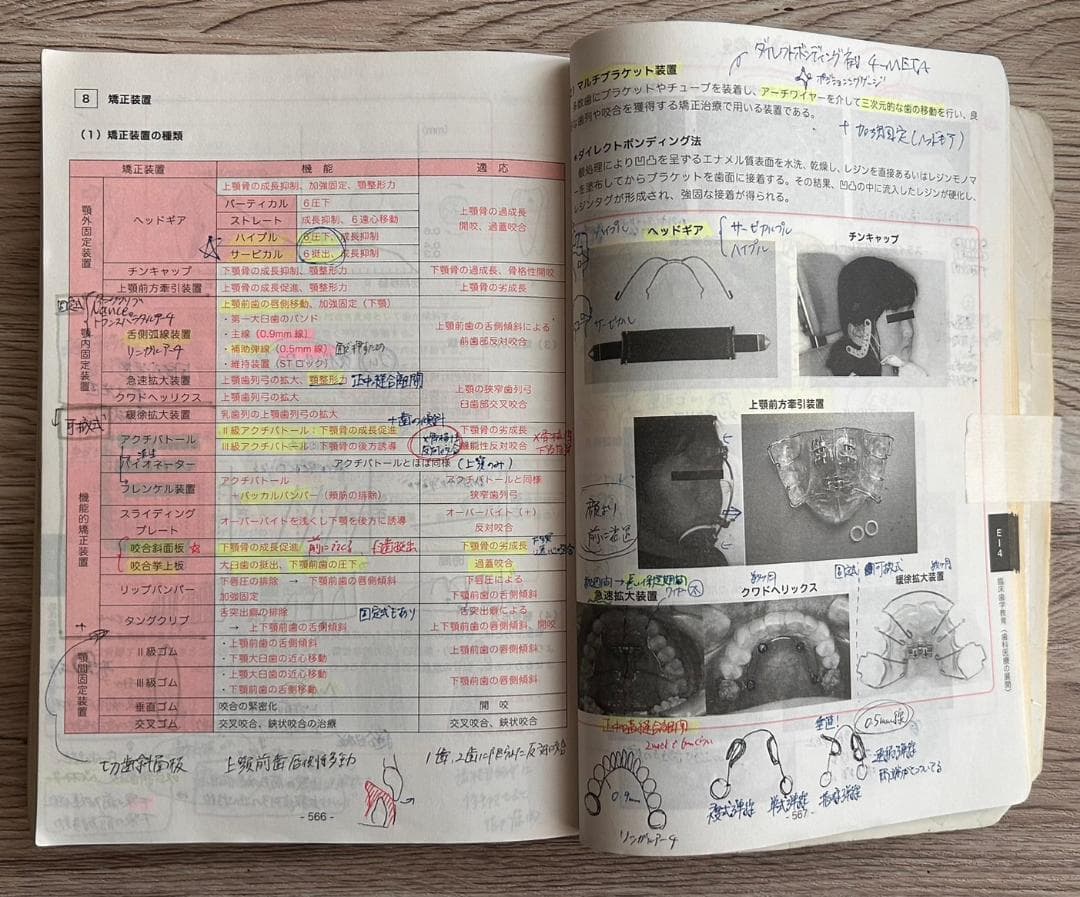 8 矯正装置
（1）矯正装置の種類
矯正装置 機能 適応
顎外固定装置
ヘッドギア
上顎骨の成長抑制、加強固定、顎整形力
バーティカル 6圧下
ストレート 成長抑制、6遠心移動
ハイプル 6圧下、成長抑制
サービカル 6挺出、成長抑制
上顎骨の過成長
開咬、過蓋咬合
チンキャップ 下顎骨の成長抑制、顎整形力 下顎骨の過成長、骨格性開咬
上顎前方牽引装置 上顎骨の成長促進、顎整形力 上顎骨の劣成長
固定式
Nance
顎内固定装置
舌側弧線装置
リンガルアーチ
上顎前歯の唇側移動、加強固定（下顎）
・第一大臼歯のバンド
・主線（0.9mm線）
・補助弾線（0.5mm線）
・維持装置（STロック）
上顎前歯の舌側傾斜による
前歯部反対咬合
急速拡大装置 上顎歯列弓の拡大、顎整形力 正中縫合離開
クワドヘリックス 上顎歯列弓の拡大
上顎の狭窄歯列弓
臼歯部交叉咬合
可撤式
緩徐拡大装置 乳歯列の上顎歯列弓の拡大
+歯の傾斜
機能的矯正装置
アクチバトール
Ⅱ級アクチバトール：下顎骨の成長促進 下顎骨の劣成長
Ⅲ級アクチバトール：下顎骨の後方誘導 機能性反対咬合
バイオネーター アクチバトールとほぼ同様 （上顎のみ）
フレンケル装置
アクチバトール アクチバトールと同様
＋バッカルバンパー（頬筋の排除） 狭窄歯列弓
スライディング
プレート
オーバーバイトを浅くし下顎を後方に誘導
オーバーバイト（＋）
反対咬合
咬合斜面板 下顎骨の成長促進 前に 下顎骨の劣成長
咬合挙上板 大臼歯の挺出、下顎前歯の圧下 過蓋咬合
リップバンパー
下唇圧の排除 → 下顎前歯の唇側傾斜
加強固定
下唇圧による
下顎前歯の舌側傾斜
タングクリブ
舌突出癖の排除 固定式もあり
→ 上下顎前歯の舌側傾斜
舌突出癖による
上下顎前歯の唇側傾斜、開咬
顎間固定装置
Ⅱ級ゴム
・上顎前歯の舌側傾斜
・下顎大臼歯の近心移動
上顎前歯の唇側傾斜
Ⅲ級ゴム
・上顎大臼歯の近心移動
・下顎前歯の舌側移動
下顎前歯の唇側傾斜
垂直ゴム 咬合の緊密化 開咬
交叉ゴム 交叉咬合、鋏状咬合の治療 交叉咬合、鋏状咬合
切歯斜面板 上顎前歯唇側移動
- 566 -
ダイレクトボンディング 4-META
マルチブラケット装置
数歯にブラケットやチューブを装着し、アーチワイヤーを介して三次元的な歯の移動を行い、良
な歯列や咬合を獲得する矯正治療で用いる装置である。
+加強固定（ヘッドギア）
ダイレクトボンディング法
酸処理により凹凸を呈するエナメル質表面を水洗、乾燥し、レジンを直接あるいはレジンモノマ
ーを塗布してからブラケットを歯面に接着する。その結果、凹凸の中に流入したレジンが硬化し、
レジンタグが形成され、強固な接着が得られる。
ハイプル
ヘッドギア
サービカルプル
ハイプル
チンキャップ
サービカル
上顎前方牽引装置
顔より
前に
固定式 可撤式
急速拡大装置 クワドヘリックス 緩徐拡大装置
正中口蓋縫合離開
垂直!
0.5mm線
0.9mm
複式弾線 単式弾線 指様弾線
リンガルアーチ
- 567 -
E14
臨床歯学教育（歯科医療の展開）